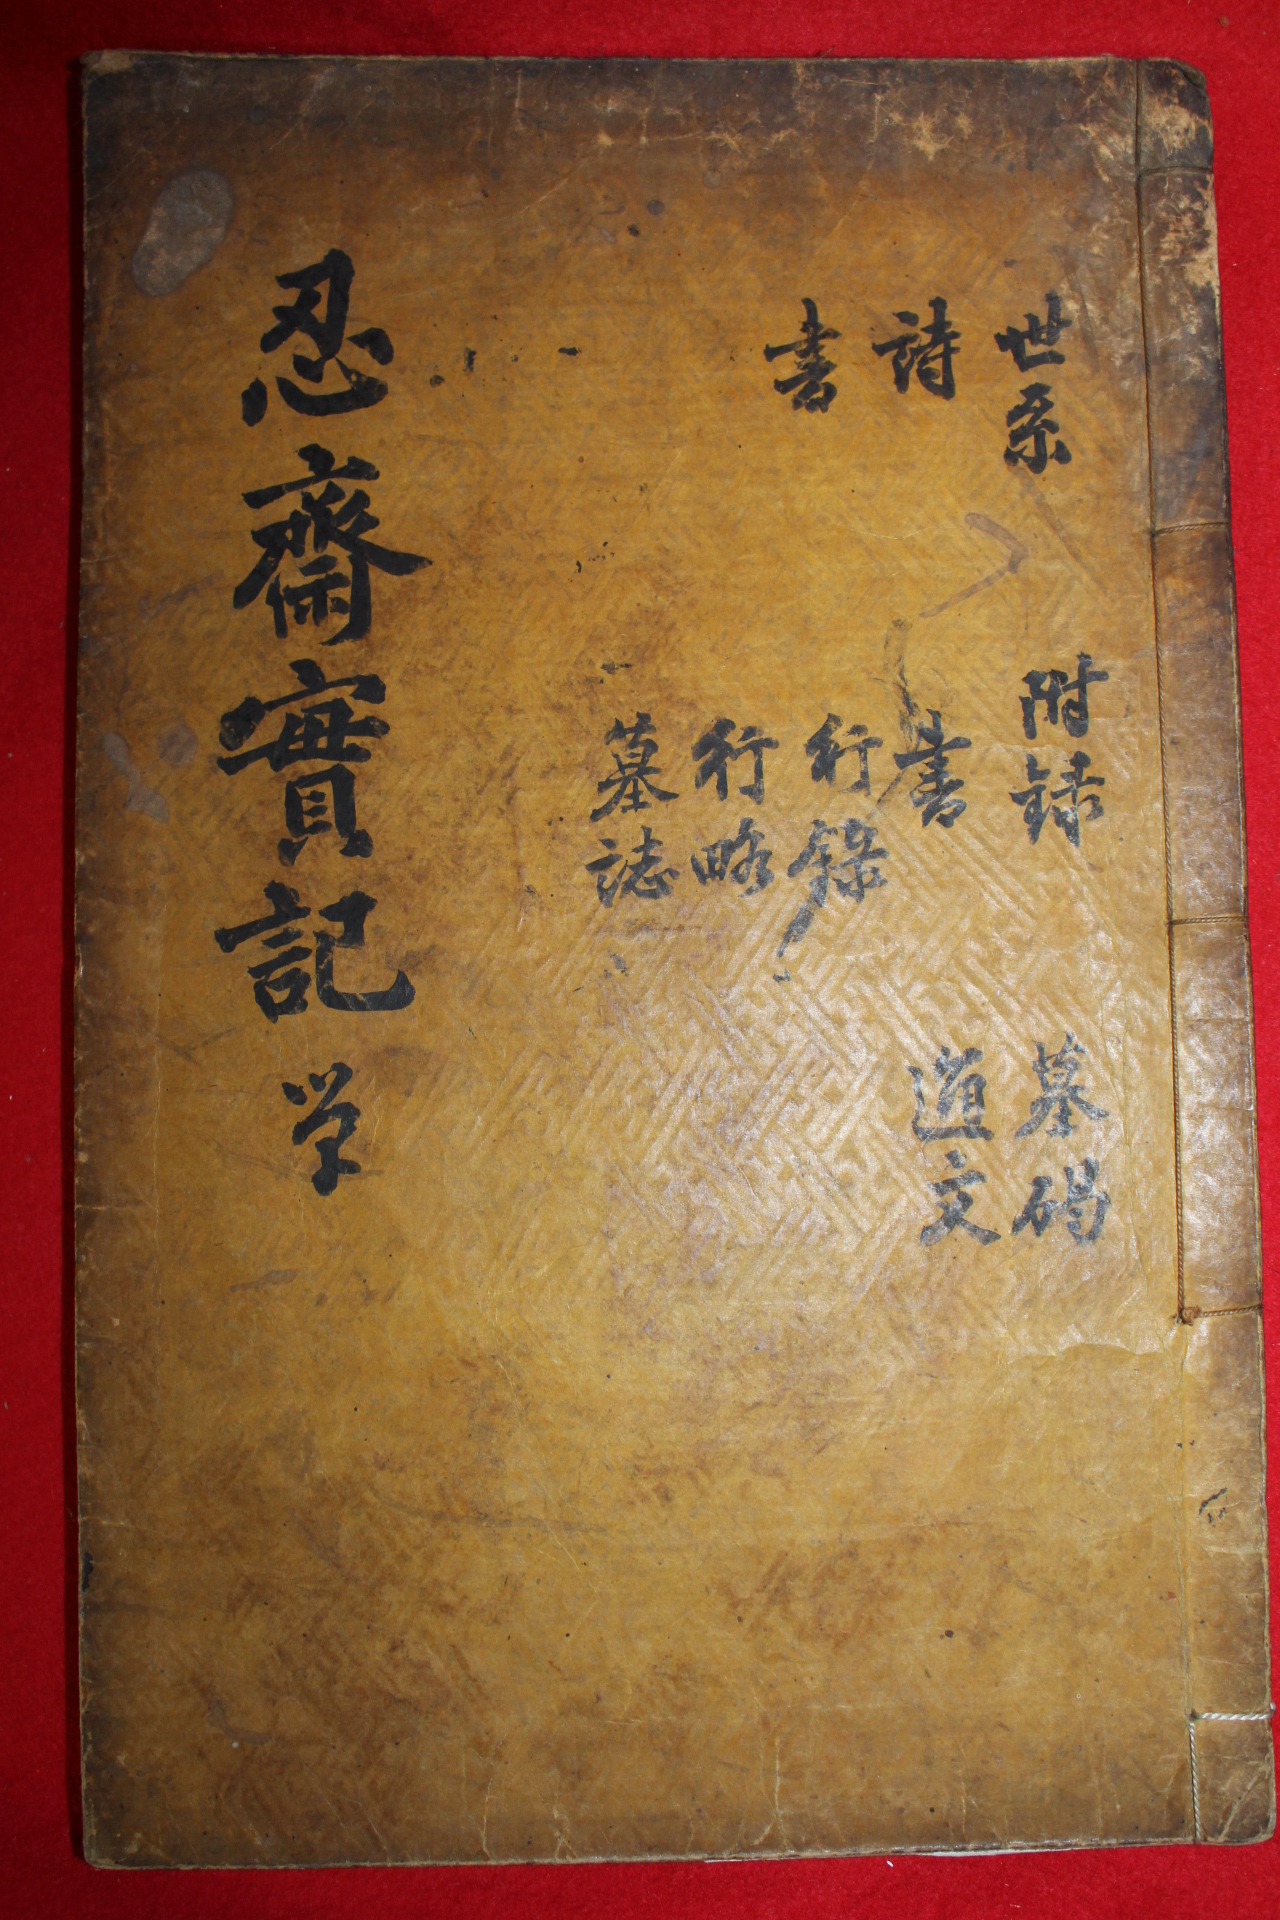 世系
詩
書
附録
書
行錄
行略
墓誌
墓碣
道文
忍齋實記 学